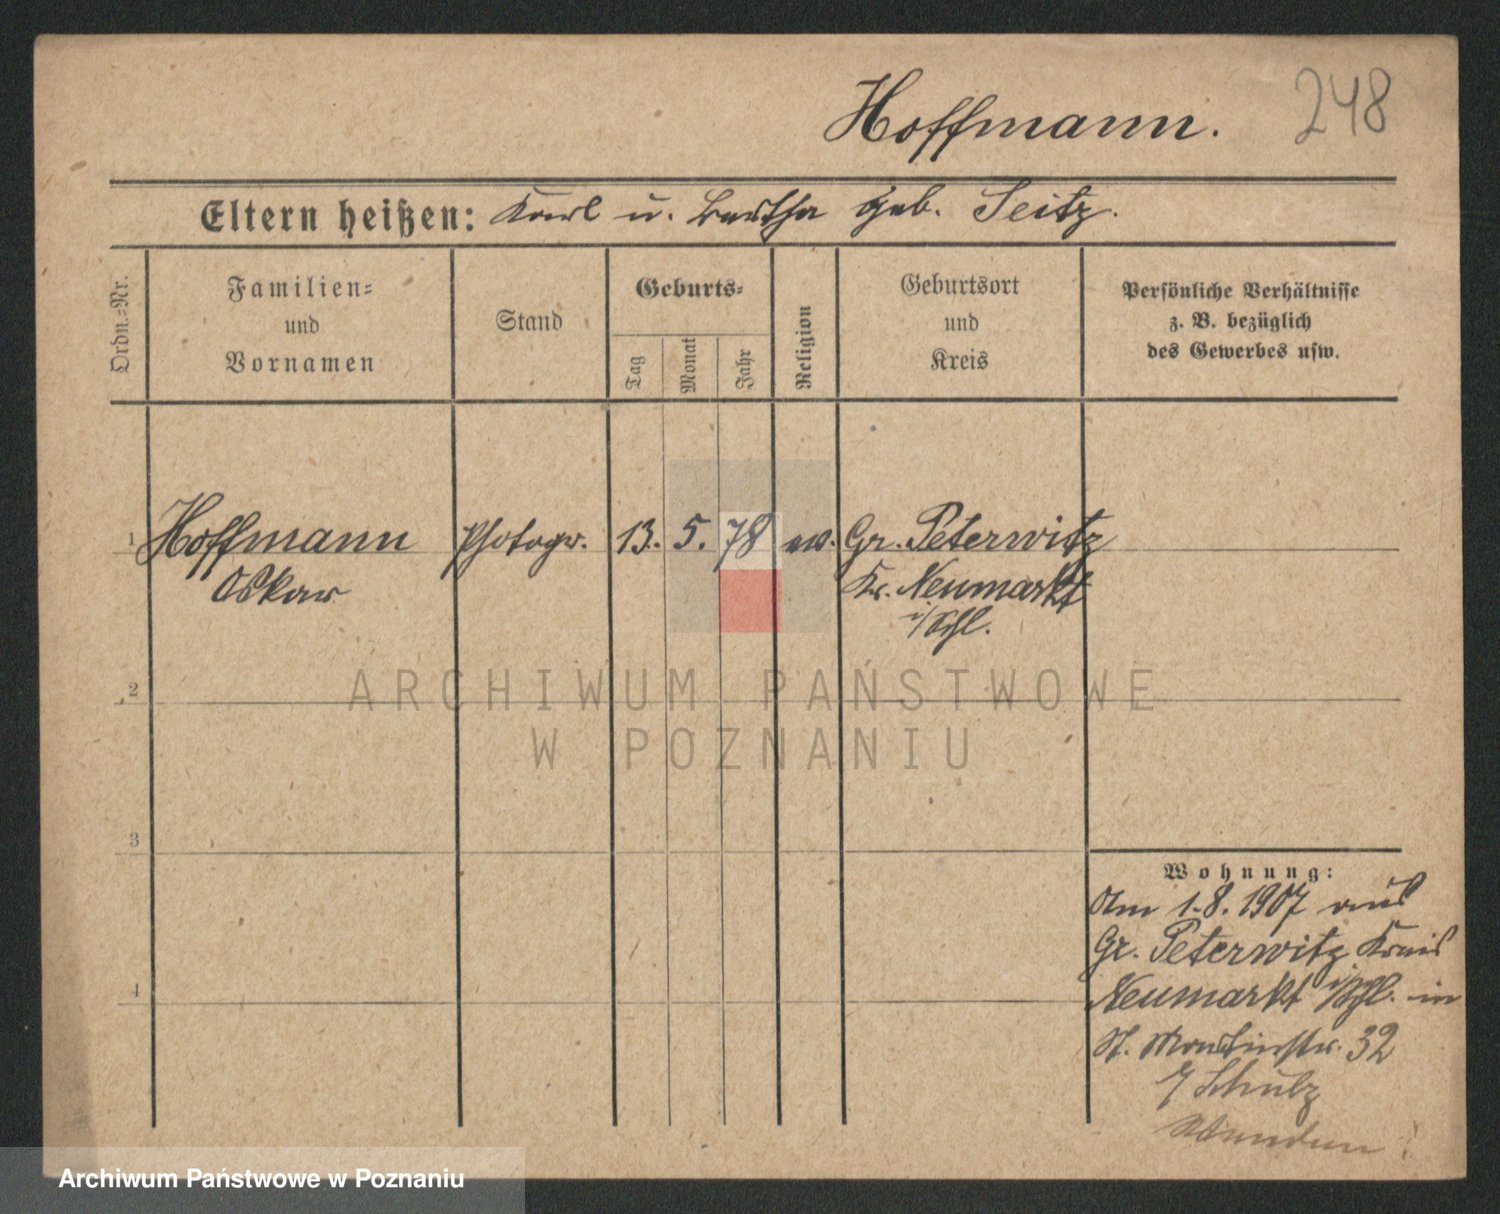 Hoffmann. 248
Eltern heißen: Karl u. Bertha geb. Seitz.
Ordn.=Nr.
Familien=
und
Vornamen
Stand
Geburts=
Tag
Monat
Jahr
Religion
Geburtsort
und
Kreis
Persönliche Verhältnisse
z. B. bezüglich
des Gewerbes usw.
1 Hoffmann Photogr. 13. 5. 78 ev. Gr. Peterwitz
Oskar Kr. Neumarkt
i/Schl.
2
ARCHIWUM PAŃSTWOWE
W POZNANIU
3
Wohnung:
Am 1.8.1907 aus
Gr. Peterwitz Kreis
4 Neumarkt i/Schl. in
St. Martinstr. 32
Schulz
Archiwum Państwowe w Poznaniu